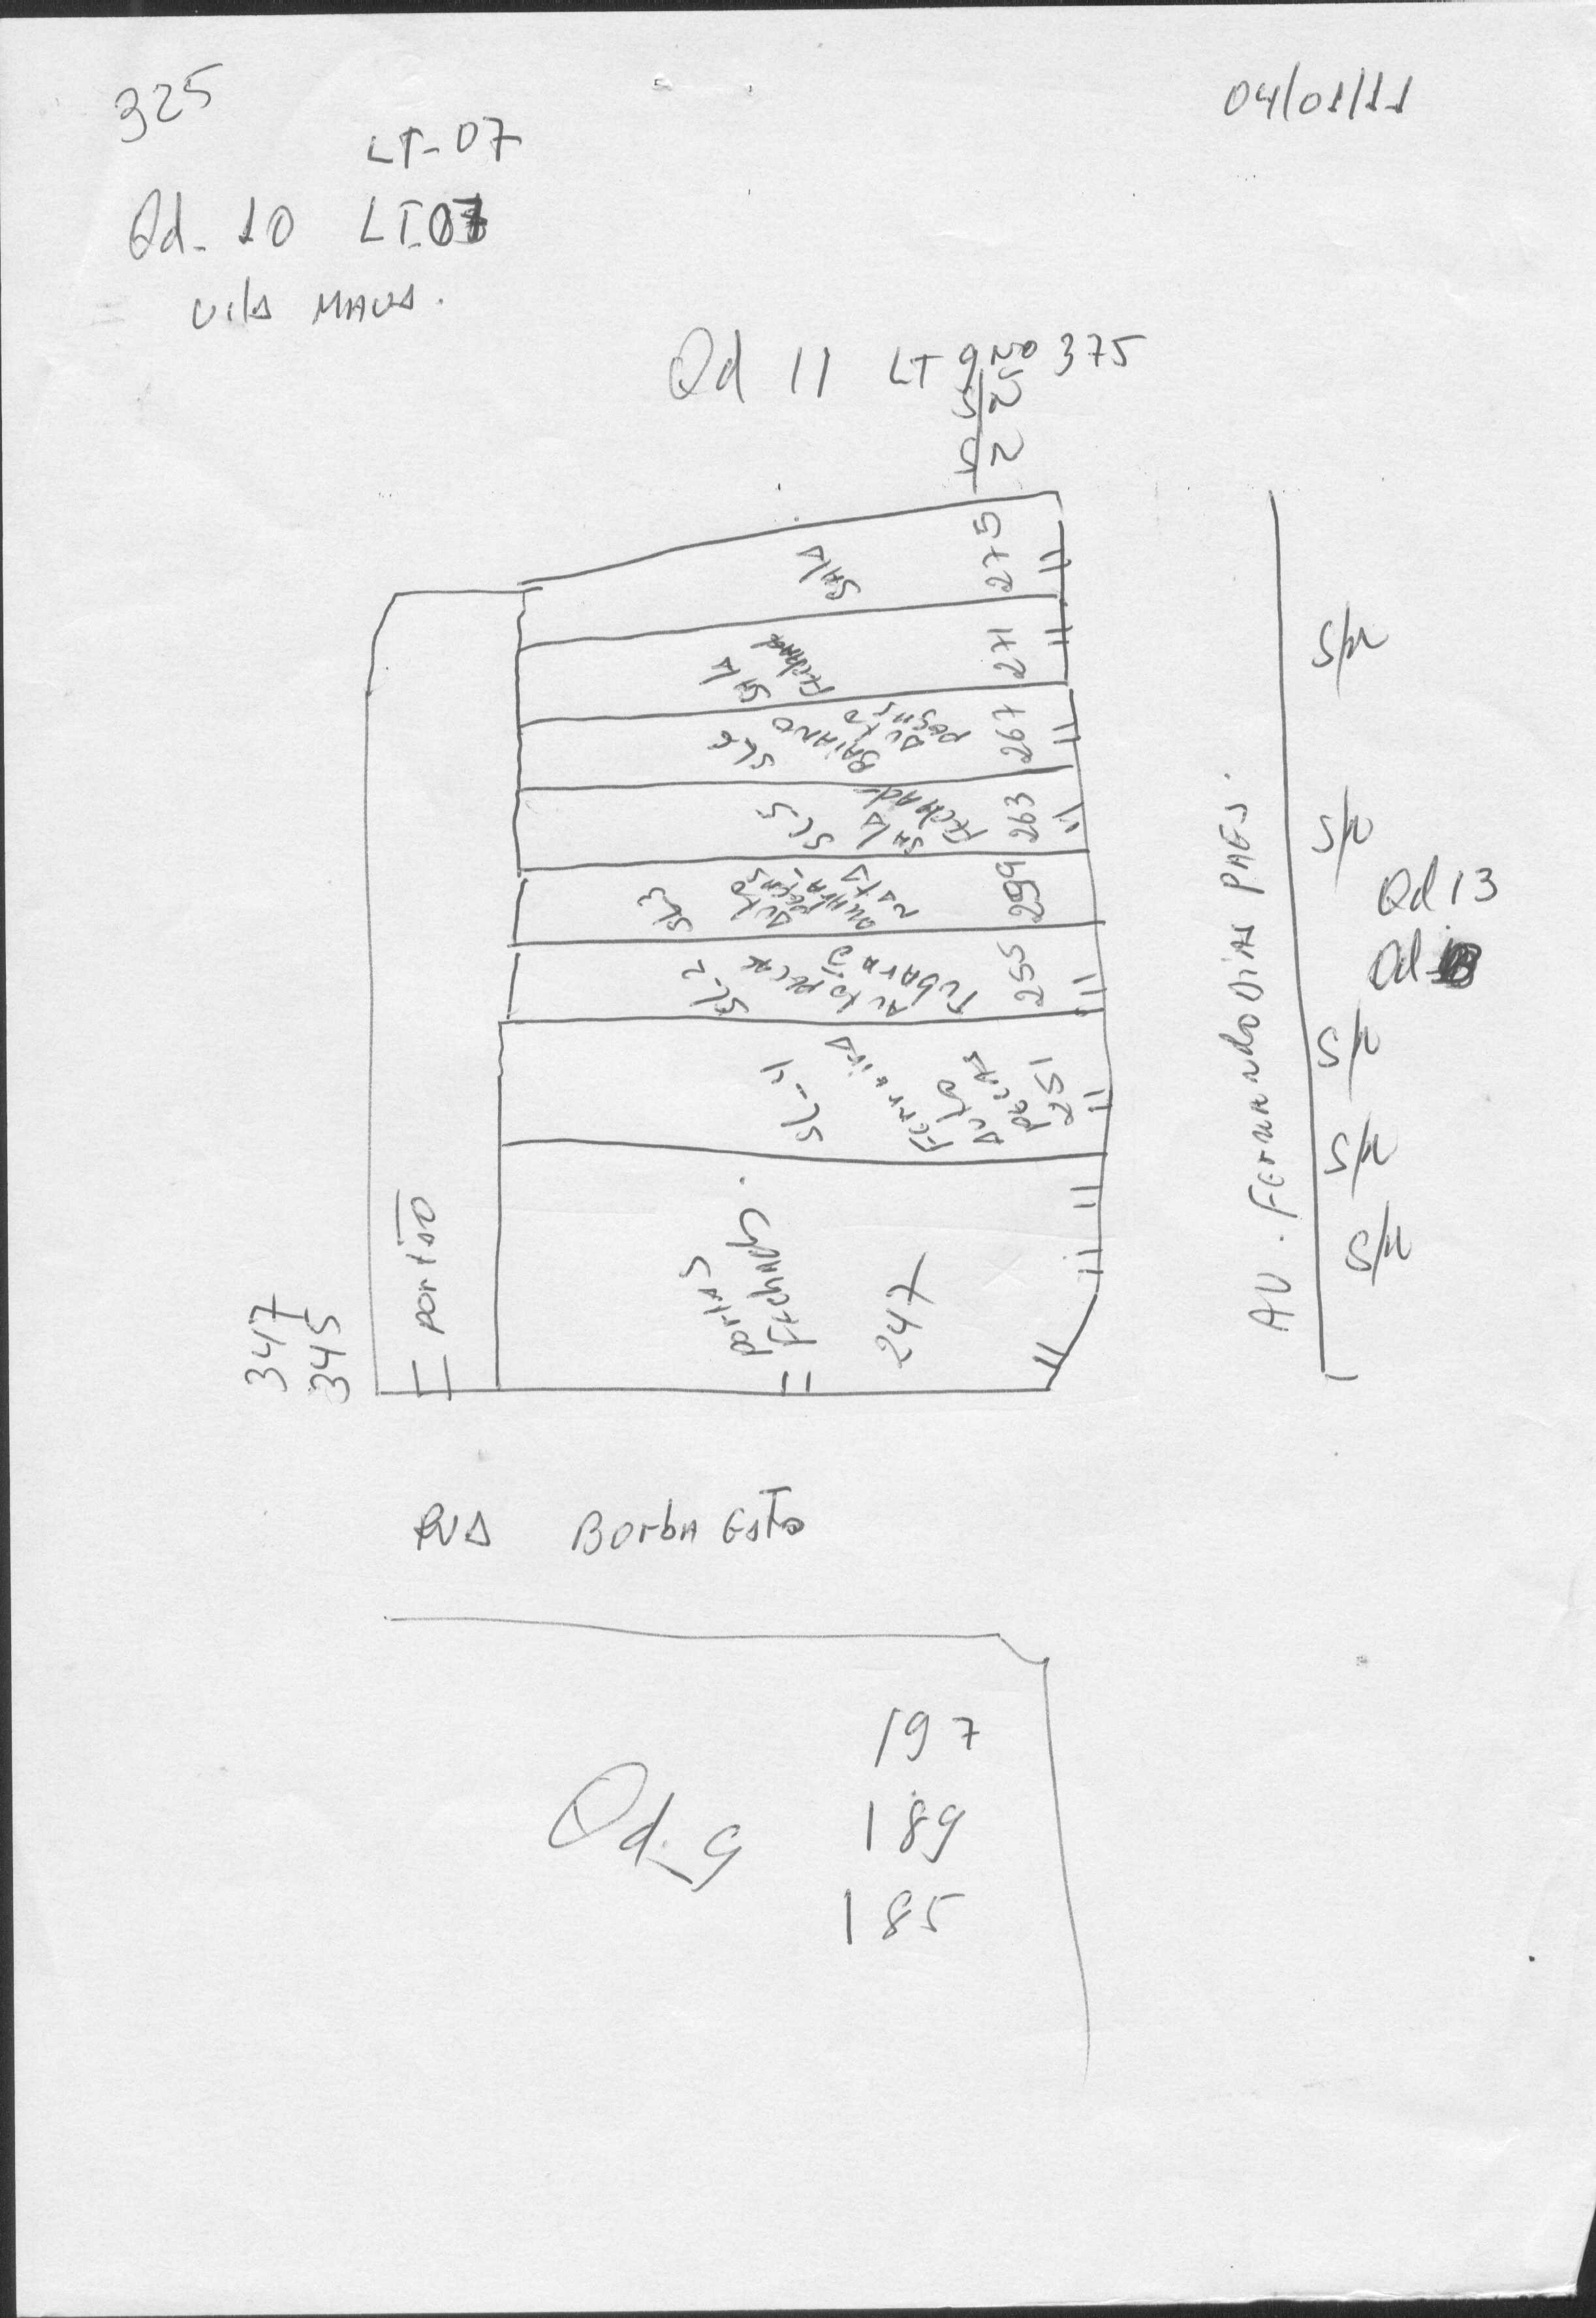 325
04/01/11
LT-07
Qd-10 LT-07
Vila MAUA.
Qd 11 LT 9 No 375
SALA
275
SALA
FECHADA
271
SL6
BAIANO
AUTO
PEÇAS
267
SL5
SALA
FECHADA
263
SL3
AUTO
PEÇAS
259
SL-2
AUTO PEÇAS
TUBARÃO
255
SL-1
Ferreira
AUTO
PEÇAS
251
portas
Fechadas.
247
portão
347
345
AV. Fernando Dias PAES.
S/N
S/N
Qd 13
S/N
S/N
S/N
RUA Borba Gato
Qd-9
197
189
185